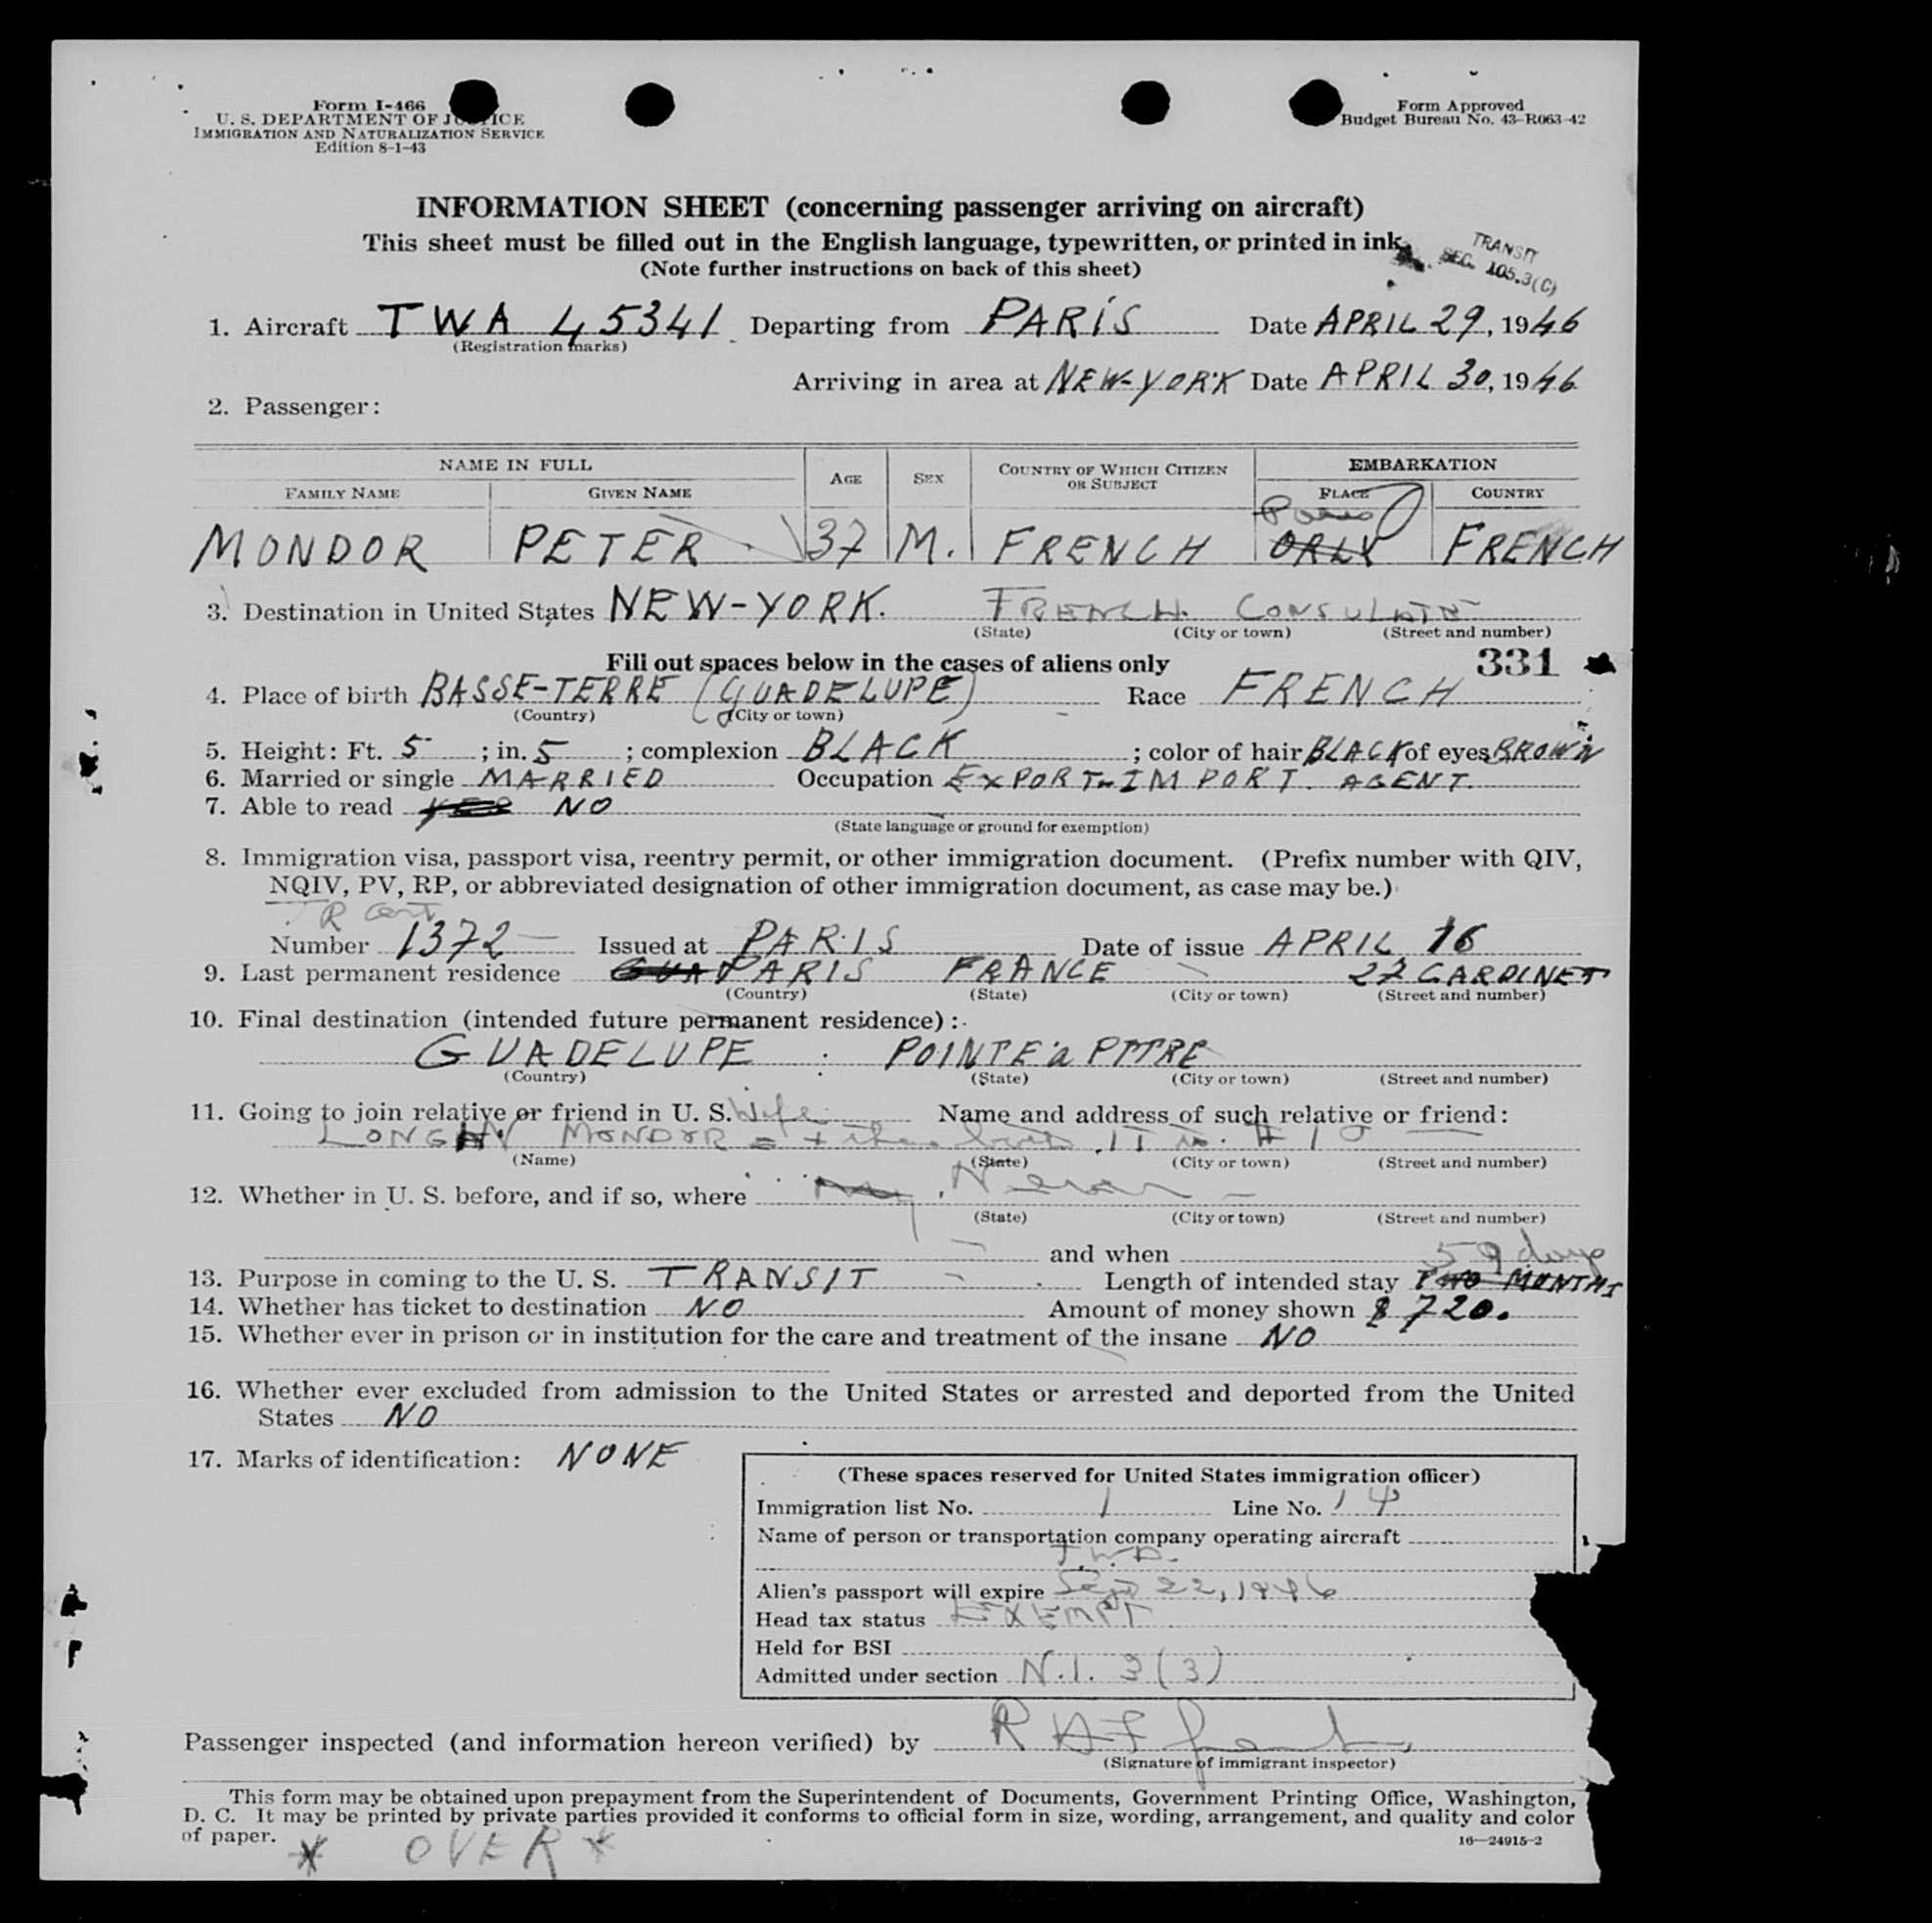 Form I-466
U. S. DEPARTMENT OF JUSTICE
IMMIGRATION AND NATURALIZATION SERVICE
Edition 8-1-43
Form Approved
Budget Bureau No. 43-R063-42
INFORMATION SHEET (concerning passenger arriving on aircraft)
This sheet must be filled out in the English language, typewritten, or printed in ink.
(Note further instructions on back of this sheet)
TRANSIT
SEC. 105.3(C)
1. Aircraft TWA 45341 Departing from PARIS Date APRIL 29, 1946
(Registration marks)
Arriving in area at NEW-YORK Date APRIL 30, 1946
2. Passenger:
NAME IN FULL AGE SEX COUNTRY OF WHICH CITIZEN OR SUBJECT EMBARKATION
FAMILY NAME GIVEN NAME PLACE COUNTRY
Paris
MONDOR PETER 37 M. FRENCH ORLY FRENCH
3. Destination in United States NEW-YORK. FRENCH CONSULATE
(State) (City or town) (Street and number)
Fill out spaces below in the cases of aliens only 331
4. Place of birth BASSE-TERRE (GUADELUPE) Race FRENCH
(Country) (City or town)
5. Height: Ft. 5 ; in. 5 ; complexion BLACK ; color of hair BLACK of eyes BROWN
6. Married or single MARRIED Occupation EXPORT-IMPORT. AGENT.
7. Able to read YES NO
(State language or ground for exemption)
8. Immigration visa, passport visa, reentry permit, or other immigration document. (Prefix number with QIV,
NQIV, PV, RP, or abbreviated designation of other immigration document, as case may be.)
TR Cert
Number 1372 Issued at PARIS Date of issue APRIL 16
9. Last permanent residence GUA PARIS FRANCE 27 CARDINET
(Country) (State) (City or town) (Street and number)
10. Final destination (intended future permanent residence):
GUADELUPE POINTE a PITRE
(Country) (State) (City or town) (Street and number)
11. Going to join relative or friend in U. S. Wife Name and address of such relative or friend:
MONDOR
(Name) (State) (City or town) (Street and number)
12. Whether in U. S. before, and if so, where Never
(State) (City or town) (Street and number)
and when 59 days
13. Purpose in coming to the U. S. TRANSIT Length of intended stay TWO MONTHS
14. Whether has ticket to destination NO Amount of money shown $ 720.
15. Whether ever in prison or in institution for the care and treatment of the insane NO
16. Whether ever excluded from admission to the United States or arrested and deported from the United
States NO
17. Marks of identification: NONE
(These spaces reserved for United States immigration officer)
Immigration list No. 1 Line No. 14
Name of person or transportation company operating aircraft
T.W.A.
Alien's passport will expire Sept 22, 1946
Head tax status EXEMPT
Held for BSI
Admitted under section N.I. 3(3)
Passenger inspected (and information hereon verified) by
(Signature of immigrant inspector)
This form may be obtained upon prepayment from the Superintendent of Documents, Government Printing Office, Washington,
D. C. It may be printed by private parties provided it conforms to official form in size, wording, arrangement, and quality and color
of paper.
16—24915-2
* OVER *